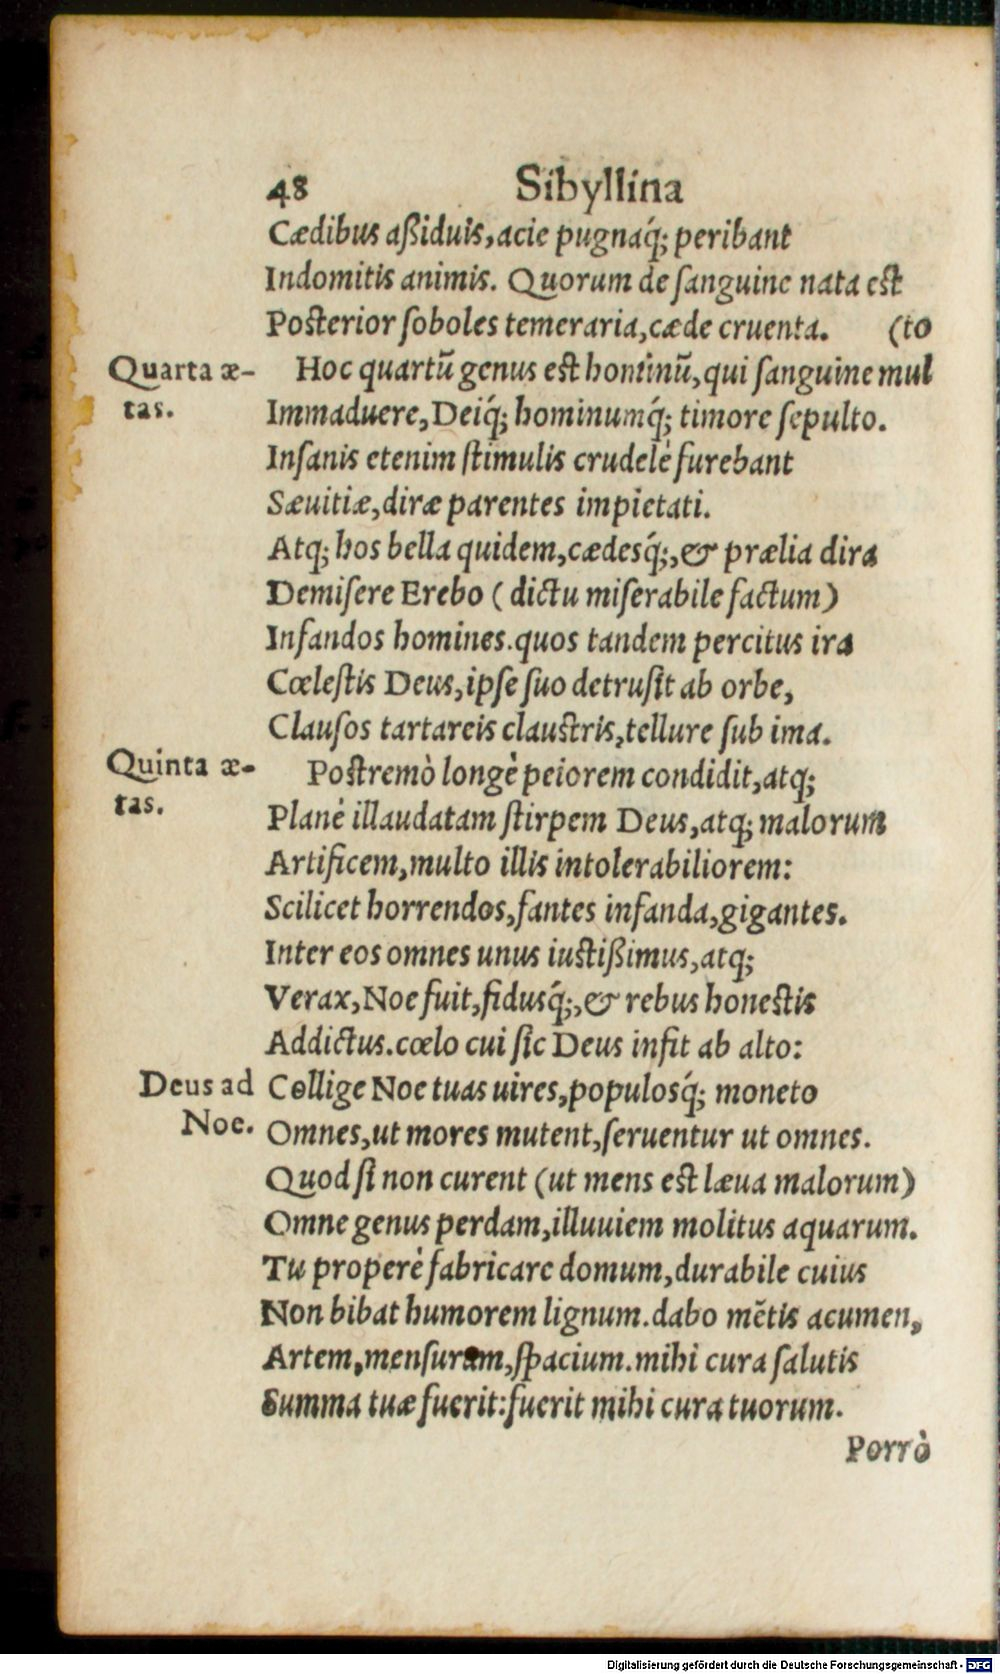 48 Sibyllina
Cædibus aßiduis, acie pugnaq́; peribant
Indomitis animis. Quorum de ſanguine nata est
Posterior ſoboles temeraria, cæde cruenta. (to
Quarta æ-
tas.
Hoc quartũ genus est hominũ, qui ſanguine mul
Immaduere, Deiq́; hominumq́; timore ſepulto.
Inſanis etenim ſtimulis crudelè furebant
Sæuitiæ, diræ parentes impietati.
Atq; hos bella quidem, cædesq́;, & prælia dira
Demiſere Erebo ( dictu miſerabile factum)
Infandos homines. quos tandem percitus ira
Cœleſtis Deus, ipſe ſuo detruſit ab orbe,
Clauſos tartareis claustris, tellure ſub ima.
Quinta æ-
tas.
Postremò longè peiorem condidit, atq;
Planè illaudatam ſtirpem Deus, atq; malorum
Artificem, multo illis intolerabiliorem:
Scilicet horrendos, fantes infanda, gigantes.
Inter eos omnes unus iustißimus, atq;
Verax, Noe fuit, fidusq́;, & rebus honestis
Addictus. cœlo cui ſic Deus infit ab alto:
Deus ad
Noe.
Collige Noe tuas uires, populosq́; moneto
Omnes, ut mores mutent, ſeruentur ut omnes.
Quod ſi non curent (ut mens est læua malorum)
Omne genus perdam, illuuiem molitus aquarum.
Tu properè fabricare domum, durabile cuius
Non bibat humorem lignum. dabo mẽtis acumen,
Artem, menſuram, ſpacium. mihi cura ſalutis
Summa tuæ fuerit: fuerit mihi cura tuorum.
Porrò
Digitalisierung gefördert durch die Deutsche Forschungsgemeinschaft - DFG